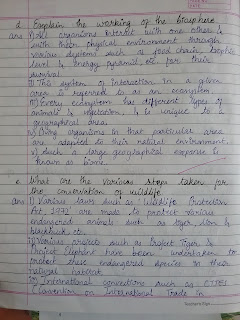 d. Explain the working of the biosphere
ans i) All organisms interact with one other &
with their physical environment through
various systems such as food chain, trophic
level & energy pyramid etc for their
survival
ii) This system of interaction in a given
area is referred to as an ecosystem.
iii) Every ecosystem has different types of
animals & vegetation & is unique to a
geographical area.
iv) Living organisms in that particular area
are adapted to their natural environment.
v) Such a large geographical expanse is
known as biome.
e. What are the various steps taken for
the conservation of wildlife
ans i) Various laws such as Wildlife Protection
Act, 1972 are made to protect various
endangered animals such as tiger, lion &
blackbuck etc.
ii) Various projects such as Project Tiger &
Project Elephant have been undertaken to
protect these endangered species in their
natural habitat.
iii) International conventions such as CITES
(Convention on International Trade in
Teacher's Sign